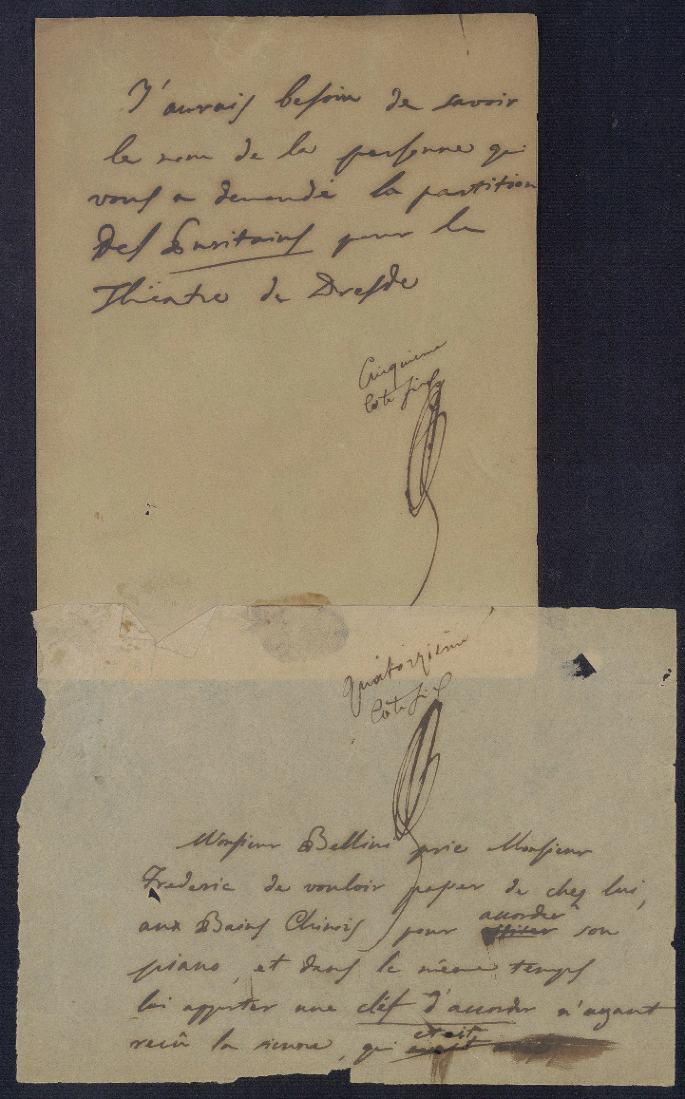 J'aurais besoin de savoir
le nom de la personne qui
vous a demandé la partition
Des Puritains pour le
Théatre de Dresde
Cinquieme
Cote
Quatorzieme
Cote
Monsieur Bellini prie Monsieur
Frederic de vouloir passer de chez lui,
aux Bains Chinois pour accorder son
piano, et dans le même temps
lui apporter une cléf d'accorder n'ayant
reçû la sienne, qui etait